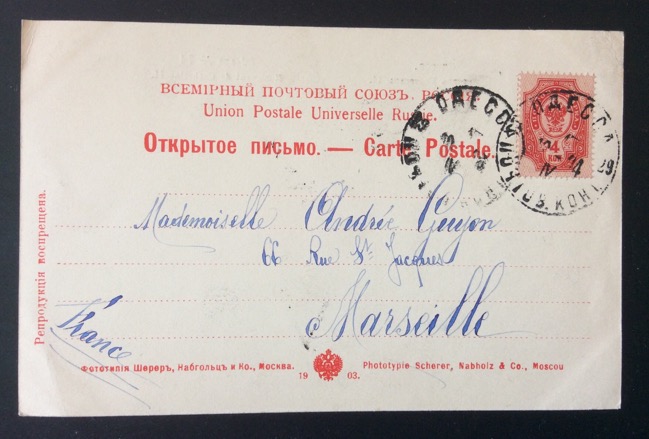 ВСЕМІРНЫЙ ПОЧТОВЫЙ СОЮЗЪ. РОССІЯ
Union Postale Universelle Russie.
Открытое письмо. — Carte Postale.
ОДЕССА
ОДЕССА
4
КОП
Mademoiselle Andrée Guyon
66 Rue St Jacques
Marseille
France
Репродукція воспрещена.
Фототипія Шереръ, Набгольцъ и Ко., Москва.
1903.
Phototypie Scherer, Nabholz & Co., Moscou